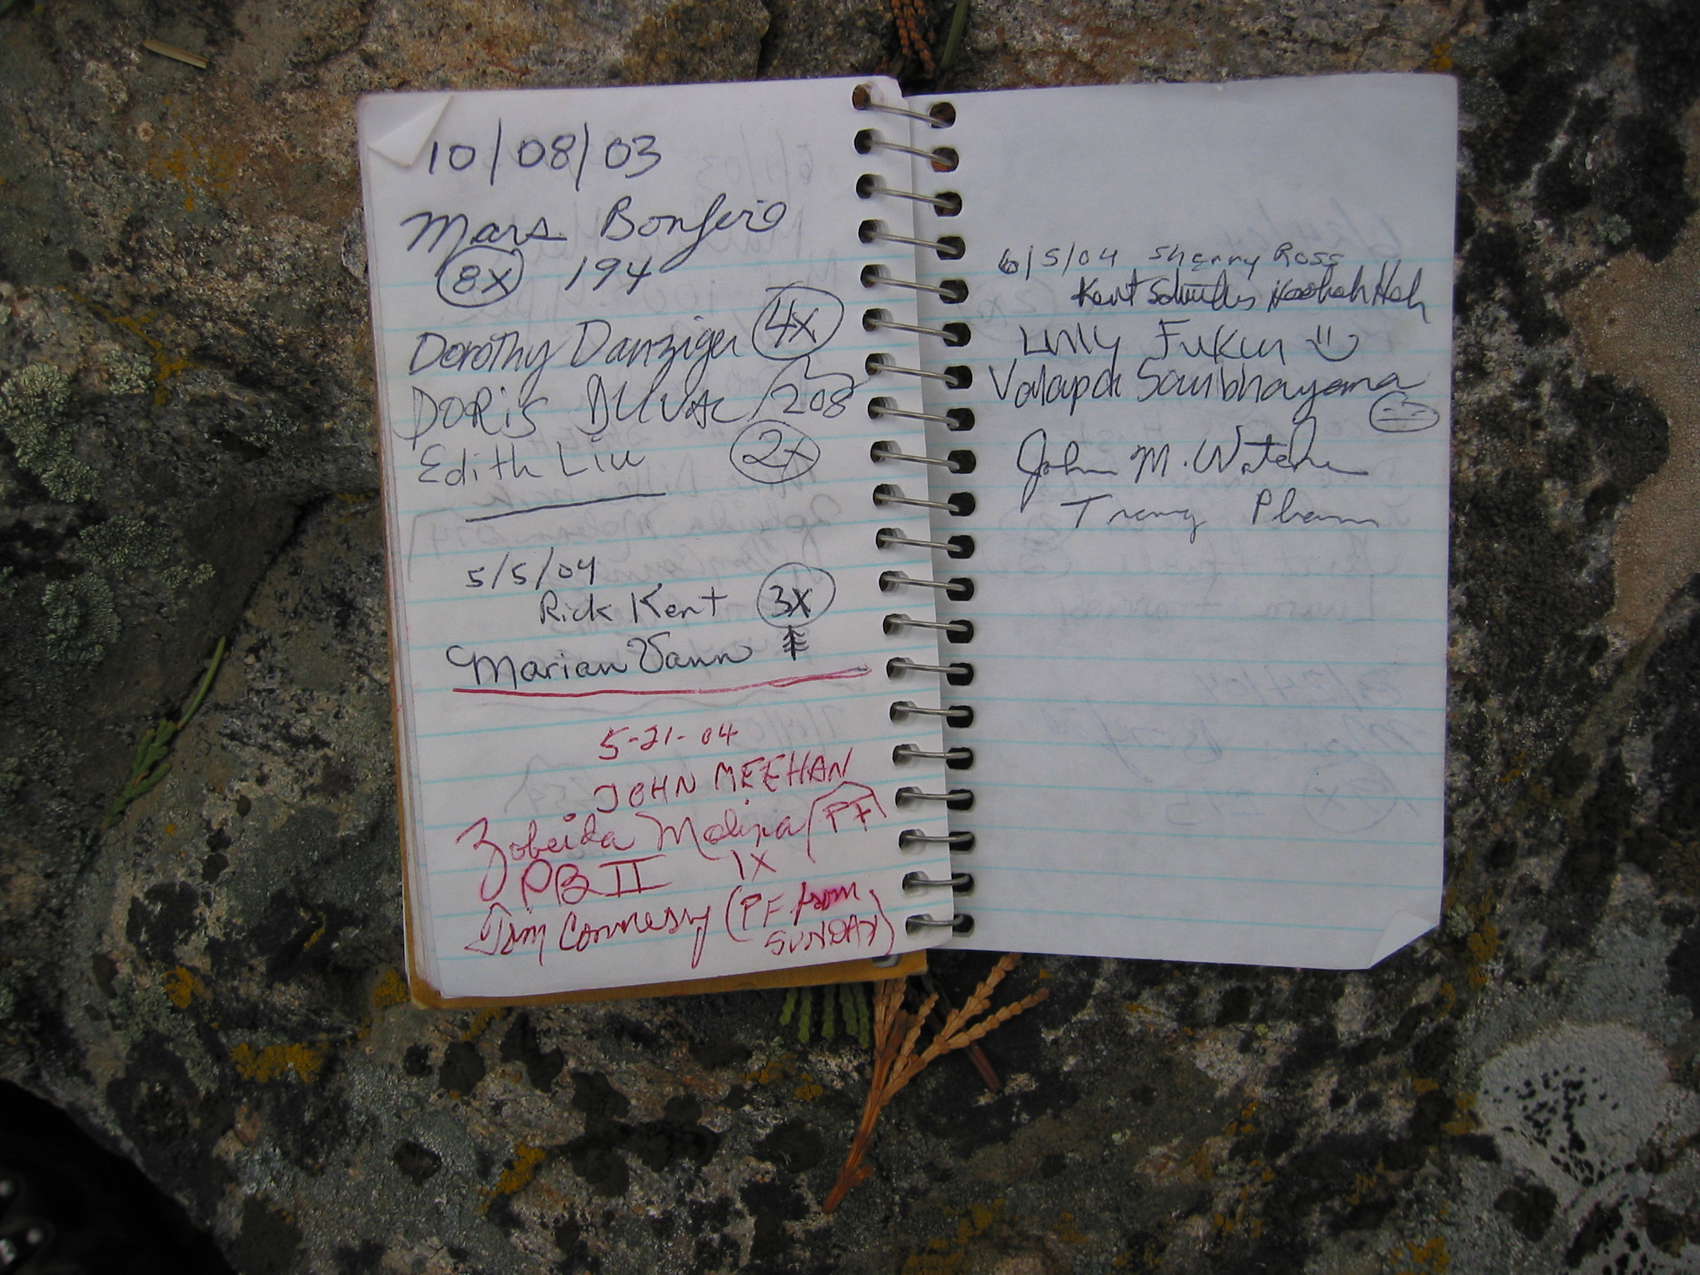 10/08/03
Mars Bonfire
8X 194
Dorothy Danziger 4X
DORIS DUVAL 208
Edith Liu 2X
5/5/04
Rick Kent 3X
Marian Vann
5-21-04
JOHN MEEHAN
Zobeida Molina PF
PB II 1X
Tim Connesy (PF from
SUNDAY)
6/5/04 Sherry Ross
Kent Hoohah Hah
Valapa
John M.
Trang Pham